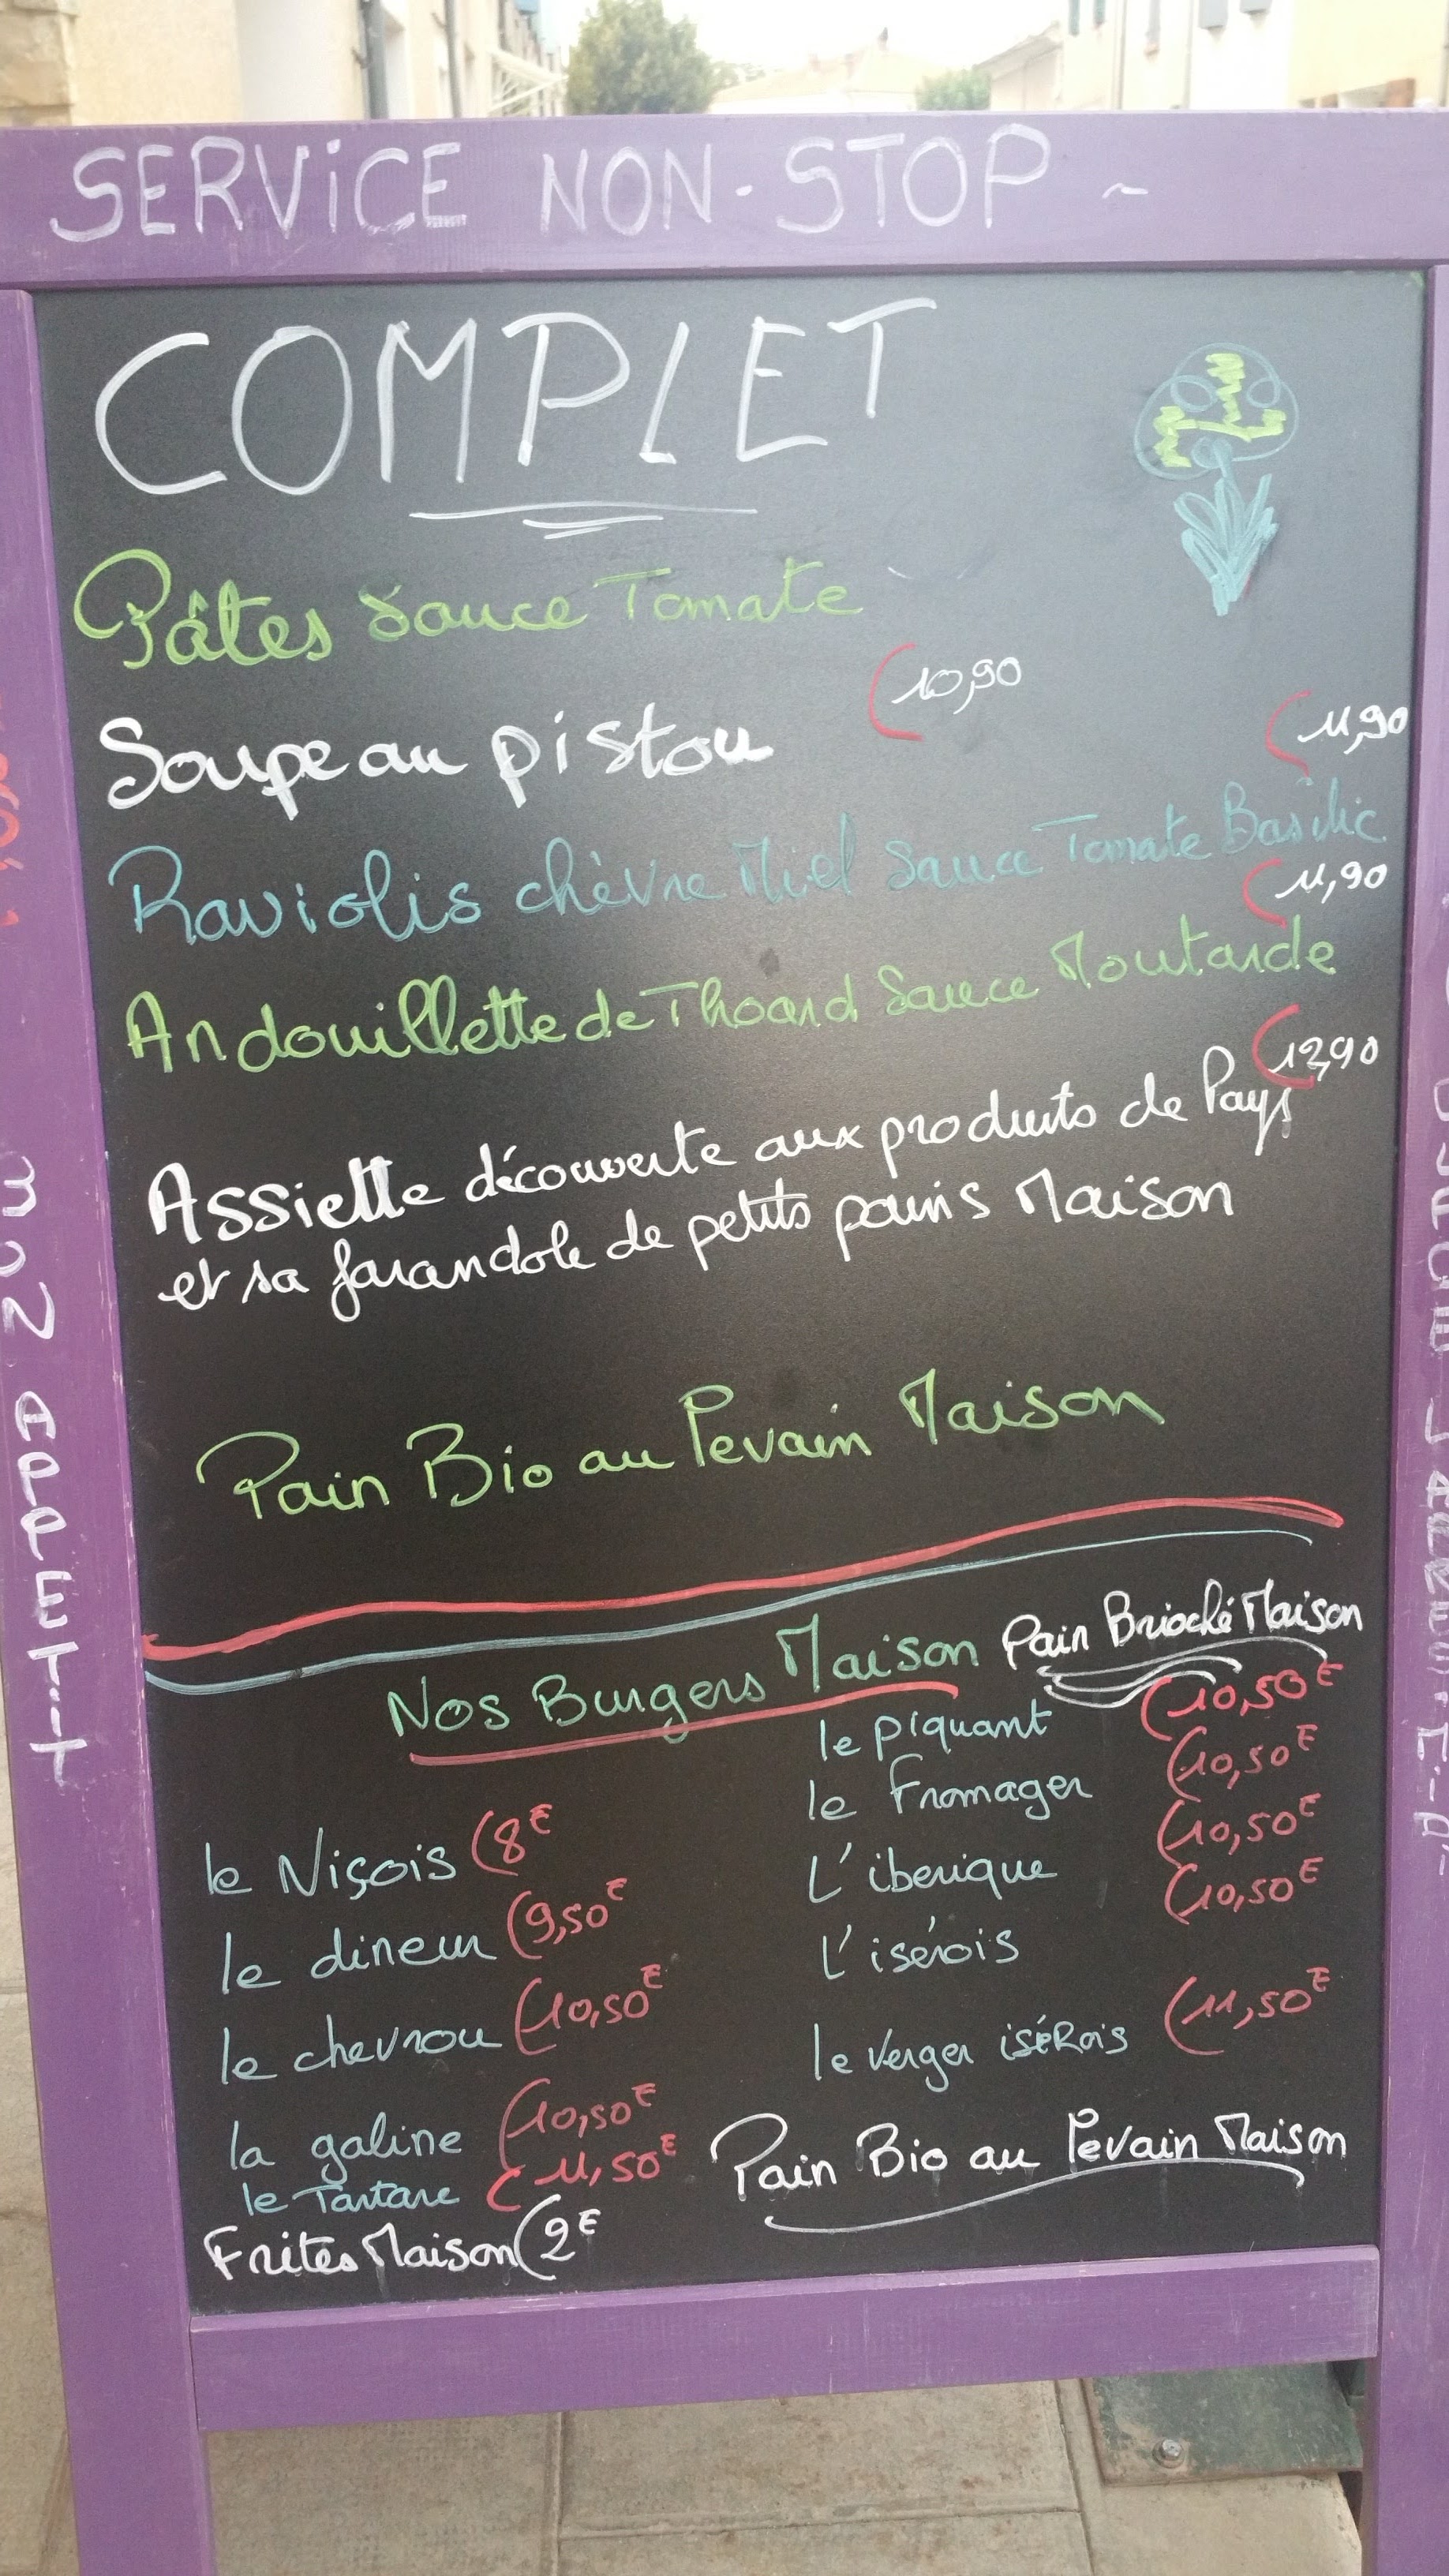 SERVICE NON-STOP ~
COMPLET
Pâtes Sauce Tomate
Soupe au pistou (10,90
(11,90
Raviolis chèvre Miel Sauce Tomate Basilic
(11,90
Andouillette de Thoard Sauce Moutarde
(12,90
Assiette découverte aux produits de Pays
et sa farandole de petits pains Maison
Pain Bio au Levain Maison
Nos Burgers Maison Pain Brioché Maison
le Niçois (8€
le dineur (9,50€
le chevrou (10,50€
la galine (10,50€
le Tartare (11,50€
Frites Maison (2€
le piquant (10,50€
le Fromager (10,50€
L'iberique (10,50€
L'isérois (10,50€
le Verger iséRois (11,50€
Pain Bio au Levain Maison
APPETIT